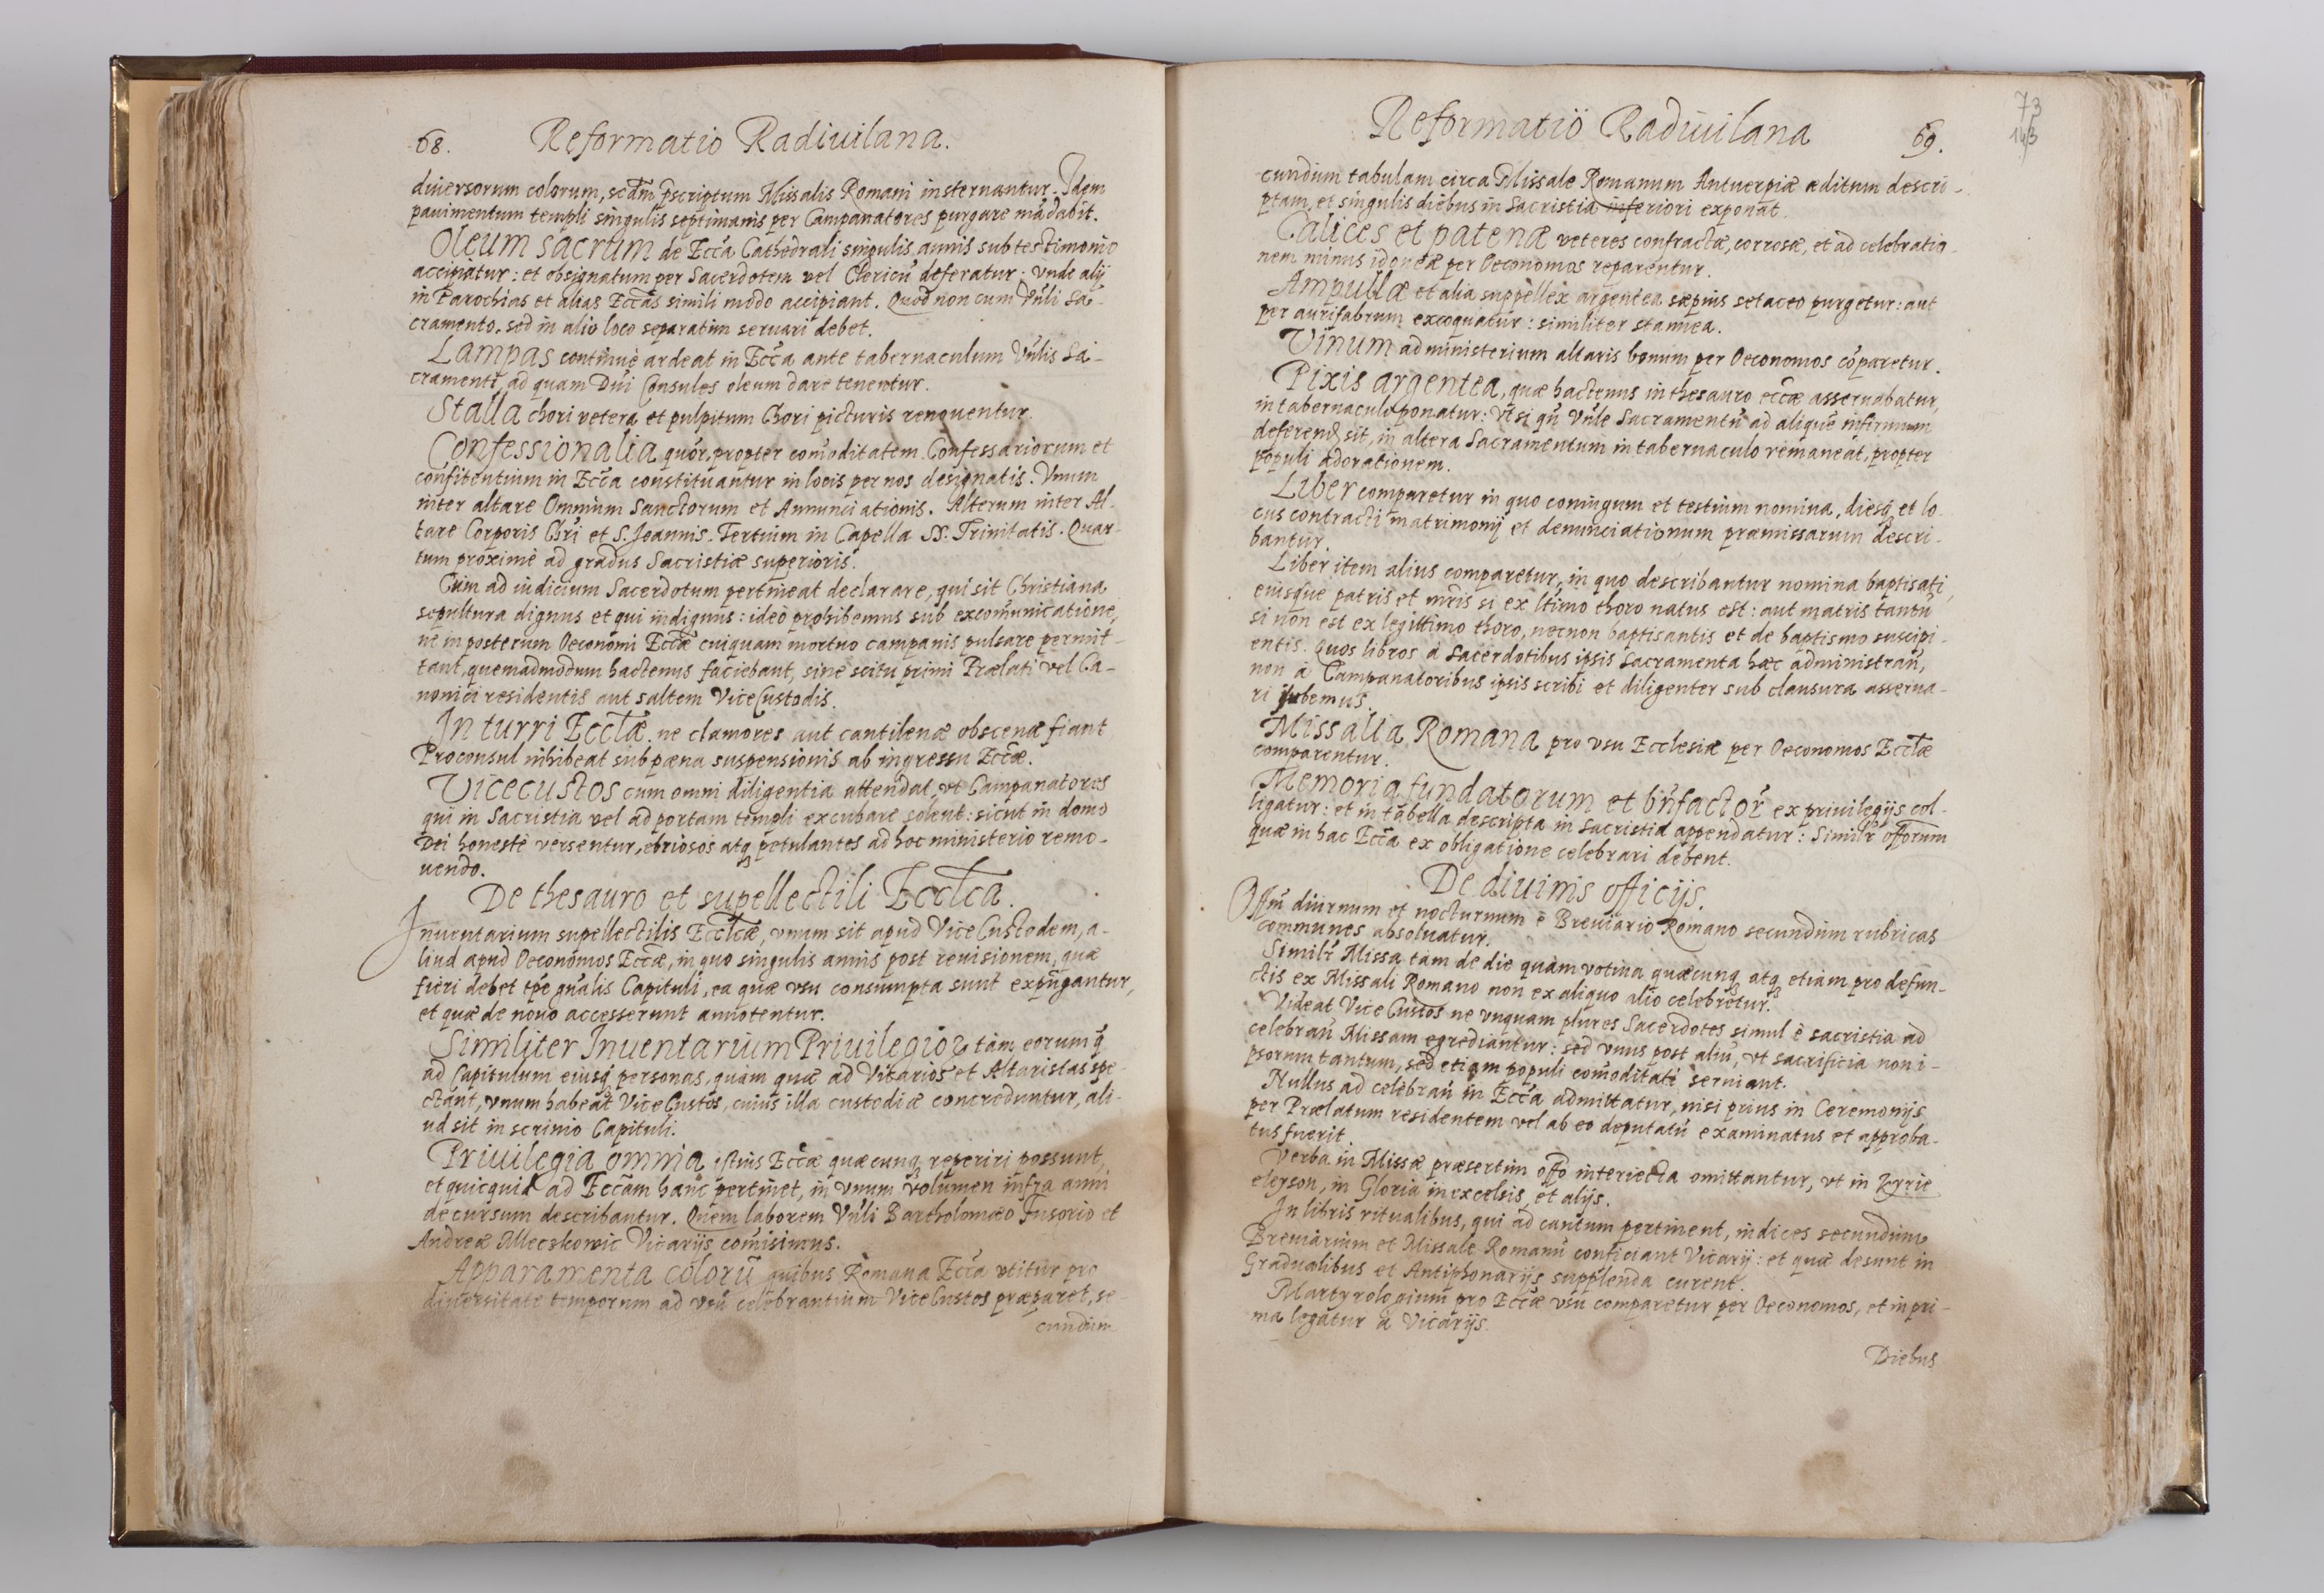 68. Reformatio Radiuilana.
diuersorum colorum, secdm pscriptum Missalis Romani insternantur. Idem
pauimentum templi singulis septimanis per Campanatores purgare mādabit.
Oleum sacrum de Ecca Cathedrali singulis annis sub testimonio
accipiatur: et obsignatum per Sacerdotem vel Clericū deferatur: vnde alij
in Parochias et alias Eccas simili modo accipiant. Quod non cum Vnli Sa-
cramento, sed in alio loco separatim seruari debet.
Lampas continuè ardeat in Ecca ante tabernaculum Vnlis Sa-
cramenti, ad quam Dni Consules oleum dare tenentur.
Stalla chori vetera et pulpitum Chori picturis renouentur.
Confessionalia quor, propter comoditatem Confessariorum et
confitentium in Ecca constituantur in locis per nos designatis. Vnum
inter altare Omnium Sanctorum et Annunciationis. Alterum inter Al-
tare Corporis Chri et S. Joannis. Tertium in Capella SS. Trinitatis. Quar-
tum proximè ad gradus Sacristiæ superioris.
Cùm ad iudicium Sacerdotum pertineat declarare, qui sit Christiana
sepultura dignus et qui indignus: ideò prohibemus sub excomunicatione,
ne in posterum Oeconomi Eccæ cuiquam mortuo campanis pulsare permit-
tant, quemadmodum hactenus faciebant, sine scitu primi Prælati vel Ca-
nonici residentis aut saltem ViceCustodis.
In turri Ecclæ. ne clamores aut cantilenæ obscenæ fiant
Proconsul inhibeat sub pæna suspensionis ab ingressu Eccæ.
Vicecustos cum omni diligentia attendat, vt Campanatores
qui in Sacristia vel ad portam templi excubare solent: sicut in domo
Dei honestè versentur, ebriosos atq petulantes ad hoc ministerio remo-
uendo.
De thesauro et supellectili Ecclca.
Inuentarium supellectilis Ecclcæ, vnum sit apud ViceCustodem, a-
liud apud Oeconomos Eccæ, in quo singulis annis post reuisionem, quæ
fieri debet tpe gnalis Capituli, ea quæ vsu consumpta sunt expūgantur,
et quæ de nouo accesserunt annotentur.
Similiter Inuentarium Priuilegioꝝ tàm eorum q
ad Capitulum eiusq personas, quàm quæ ad Vicarios et Altaristas spe-
ctant, vnum habeat ViceCustos, cuius illa custodiæ concreduntur, ali-
ud sit in scrinio Capituli.
Priuilegia omnia istius Eccæ quæcunq reperiri possunt,
et quicquid ad Eccam hanc pertinet, in vnum volumen infra anni
decursum describantur. Quem laborem Vnli Bartholomæo Fusorio et
Andreæ Mleczkowic Vicarijs comisimus.
Apparamenta colorū quibus Romana Ecca vtitur pro
diuersitate temporum ad vsū celebrantium ViceCustos præparet, se-
cundum
Reformatio Radiuilana 69.
73
143
cundum tabulam circa Missale Romanum Antuerpiæ æditum descri-
ptam, et singulis diebus in Sacristia inferiori exponat.
Calices et patenæ veteres confractæ, corrosæ, et ad celebratio-
nem minus idoneæ per Oeconomos reparentur.
Ampullæ et alia suppellex argentea sæpius setaceo purgetur: aut
per aurifabrum excoquatur: similiter stannea.
Vinum ad ministerium altaris bonum per Oeconomos cōparetur.
Pixis argentea, quæ hactenus in thesauro eccæ asseruabatur,
in tabernaculo ponatur: vt si qn Vnle Sacramentū ad aliquē infirmum
deferend sit, in altera Sacramentum in tabernaculo remaneat, propter
populi adorationem.
Liber comparetur in quo coniugum et testium nomina, diesq et lo-
cus contracti matrimonij et denunciationum præmissarum descri-
bantur.
Liber item alius comparetur, in quo describantur nomina baptisati,
eiusque patris et mris si ex ltimo thoro natus est: aut matris tantū
si non est ex legittimo thoro, necnon baptisantis et de baptismo suscipi-
entis. Quos libros à Sacerdotibus ipsis Sacramenta hæc administran,
non à Campanatoribus ipsis scribi et diligenter sub clausura asserua-
ri jubemus.
Missalia Romana pro vsu Ecclesiæ per Oeconomos Ecclæ
comparentur.
Memoria fundatorum et bnfactor ex priuilegijs col-
ligatur: et in tabella descripta in Sacristia appendatur: Similr offorum
quæ in hac Ecca ex obligatione celebrari debent.
De diuinis officijs.
Offm diurnum et nocturnum è Breuiario Romano secundum rubricas
communes absoluatur.
Similr Missa tam de die quàm votiua quæcunq atq etiam pro defun-
ctis ex Missali Romano non ex aliquo alio celebretur.
Videat ViceCustos ne vnquam plures Sacerdotes simul è sacristia ad
celebran Missam egrediantur: sed vnus post aliū, vt sacrificia non i-
psorum tantum, sed etiam populi comoditati seruiant.
Nullus ad celebran in Ecca admittatur, nisi prius in Ceremonijs
per Prælatum residentem vel ab eo deputatū examinatus et approba-
tus fuerit.
Verba in Missæ præsertim offo interiecta omittantur, vt in Kyrie
eleyson, in Gloria in excelsis, et alijs.
In libris ritualibus, qui ad cantum pertinent, indices secundum
Breuiarium et Missale Romanū conficiant Vicarij: et quæ desunt in
Gradualibus et Antiphonarijs supplenda curent.
Martyrologium pro Eccæ vsu comparetur per Oeconomos, et in pri-
ma legatur à Vicarijs.
Diebus